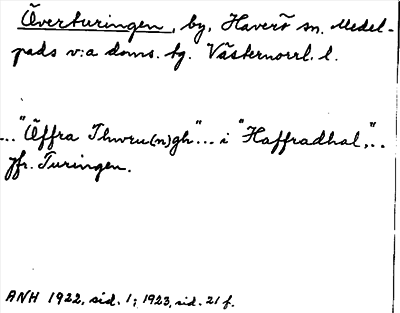 Överturingen, by, Haverö sn. Medel-
pads v:a doms. tg. Västernorrl. l.
..."Öffra Thwru(n)gh"... i "Haffradhal,"..
Jfr. Turingen.
ANH 1922, sid. 1; 1923, sid. 21 f.